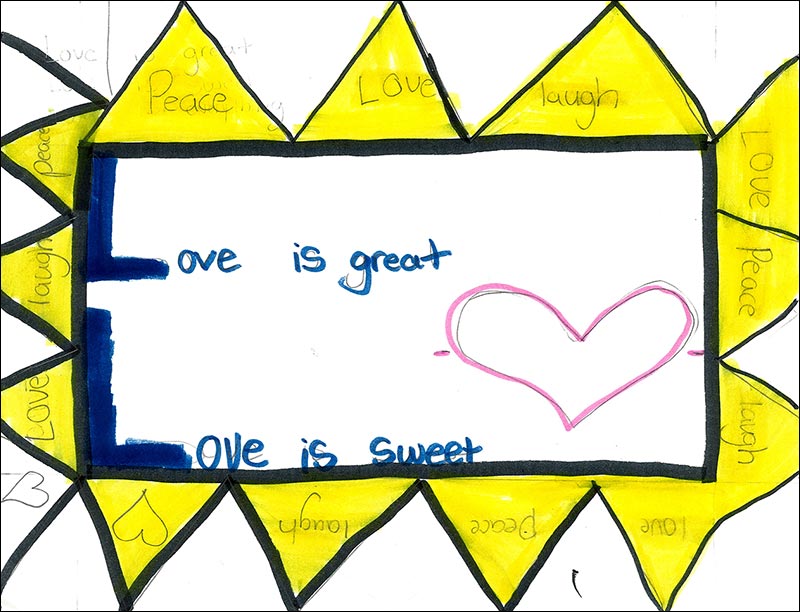 Love is great
Peace
Love
laugh
Love
Peace
laugh
love
peace
laugh
Love
laugh
peace
Love is great
Love is sweet